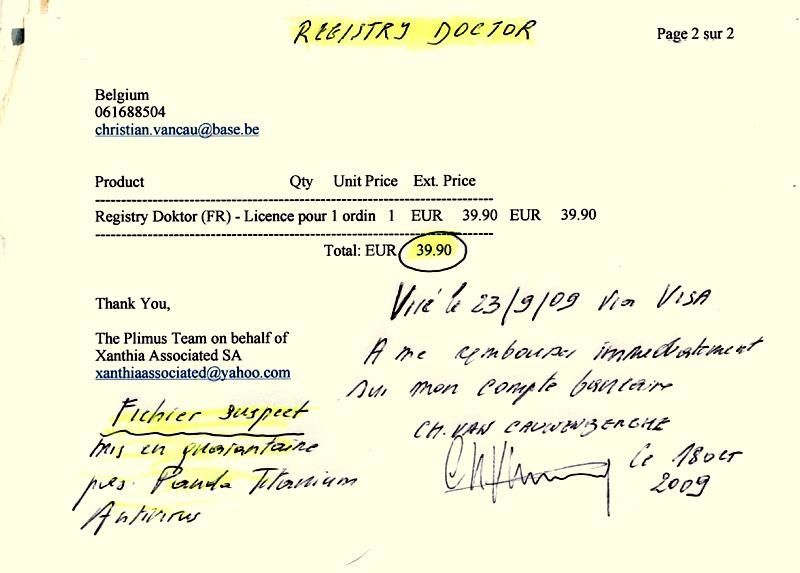 REGISTRY DOCTOR
Page 2 sur 2
Belgium
061688504
christian.vancau@base.be
Product Qty Unit Price Ext. Price
Registry Doktor (FR) - Licence pour 1 ordin 1 EUR 39.90 EUR 39.90
Total: EUR 39.90
Thank You,
The Plimus Team on behalf of
Xanthia Associated SA
xanthiaassociated@yahoo.com
Viré le 23/9/09 via VISA
A me rembourser immédiatement
sur mon compte bancaire
CH. VAN CAUWENBERGHE
Le 18 oct
2009
Fichier suspect
mis en quarantaine
par Panda Titanium
Antivirus